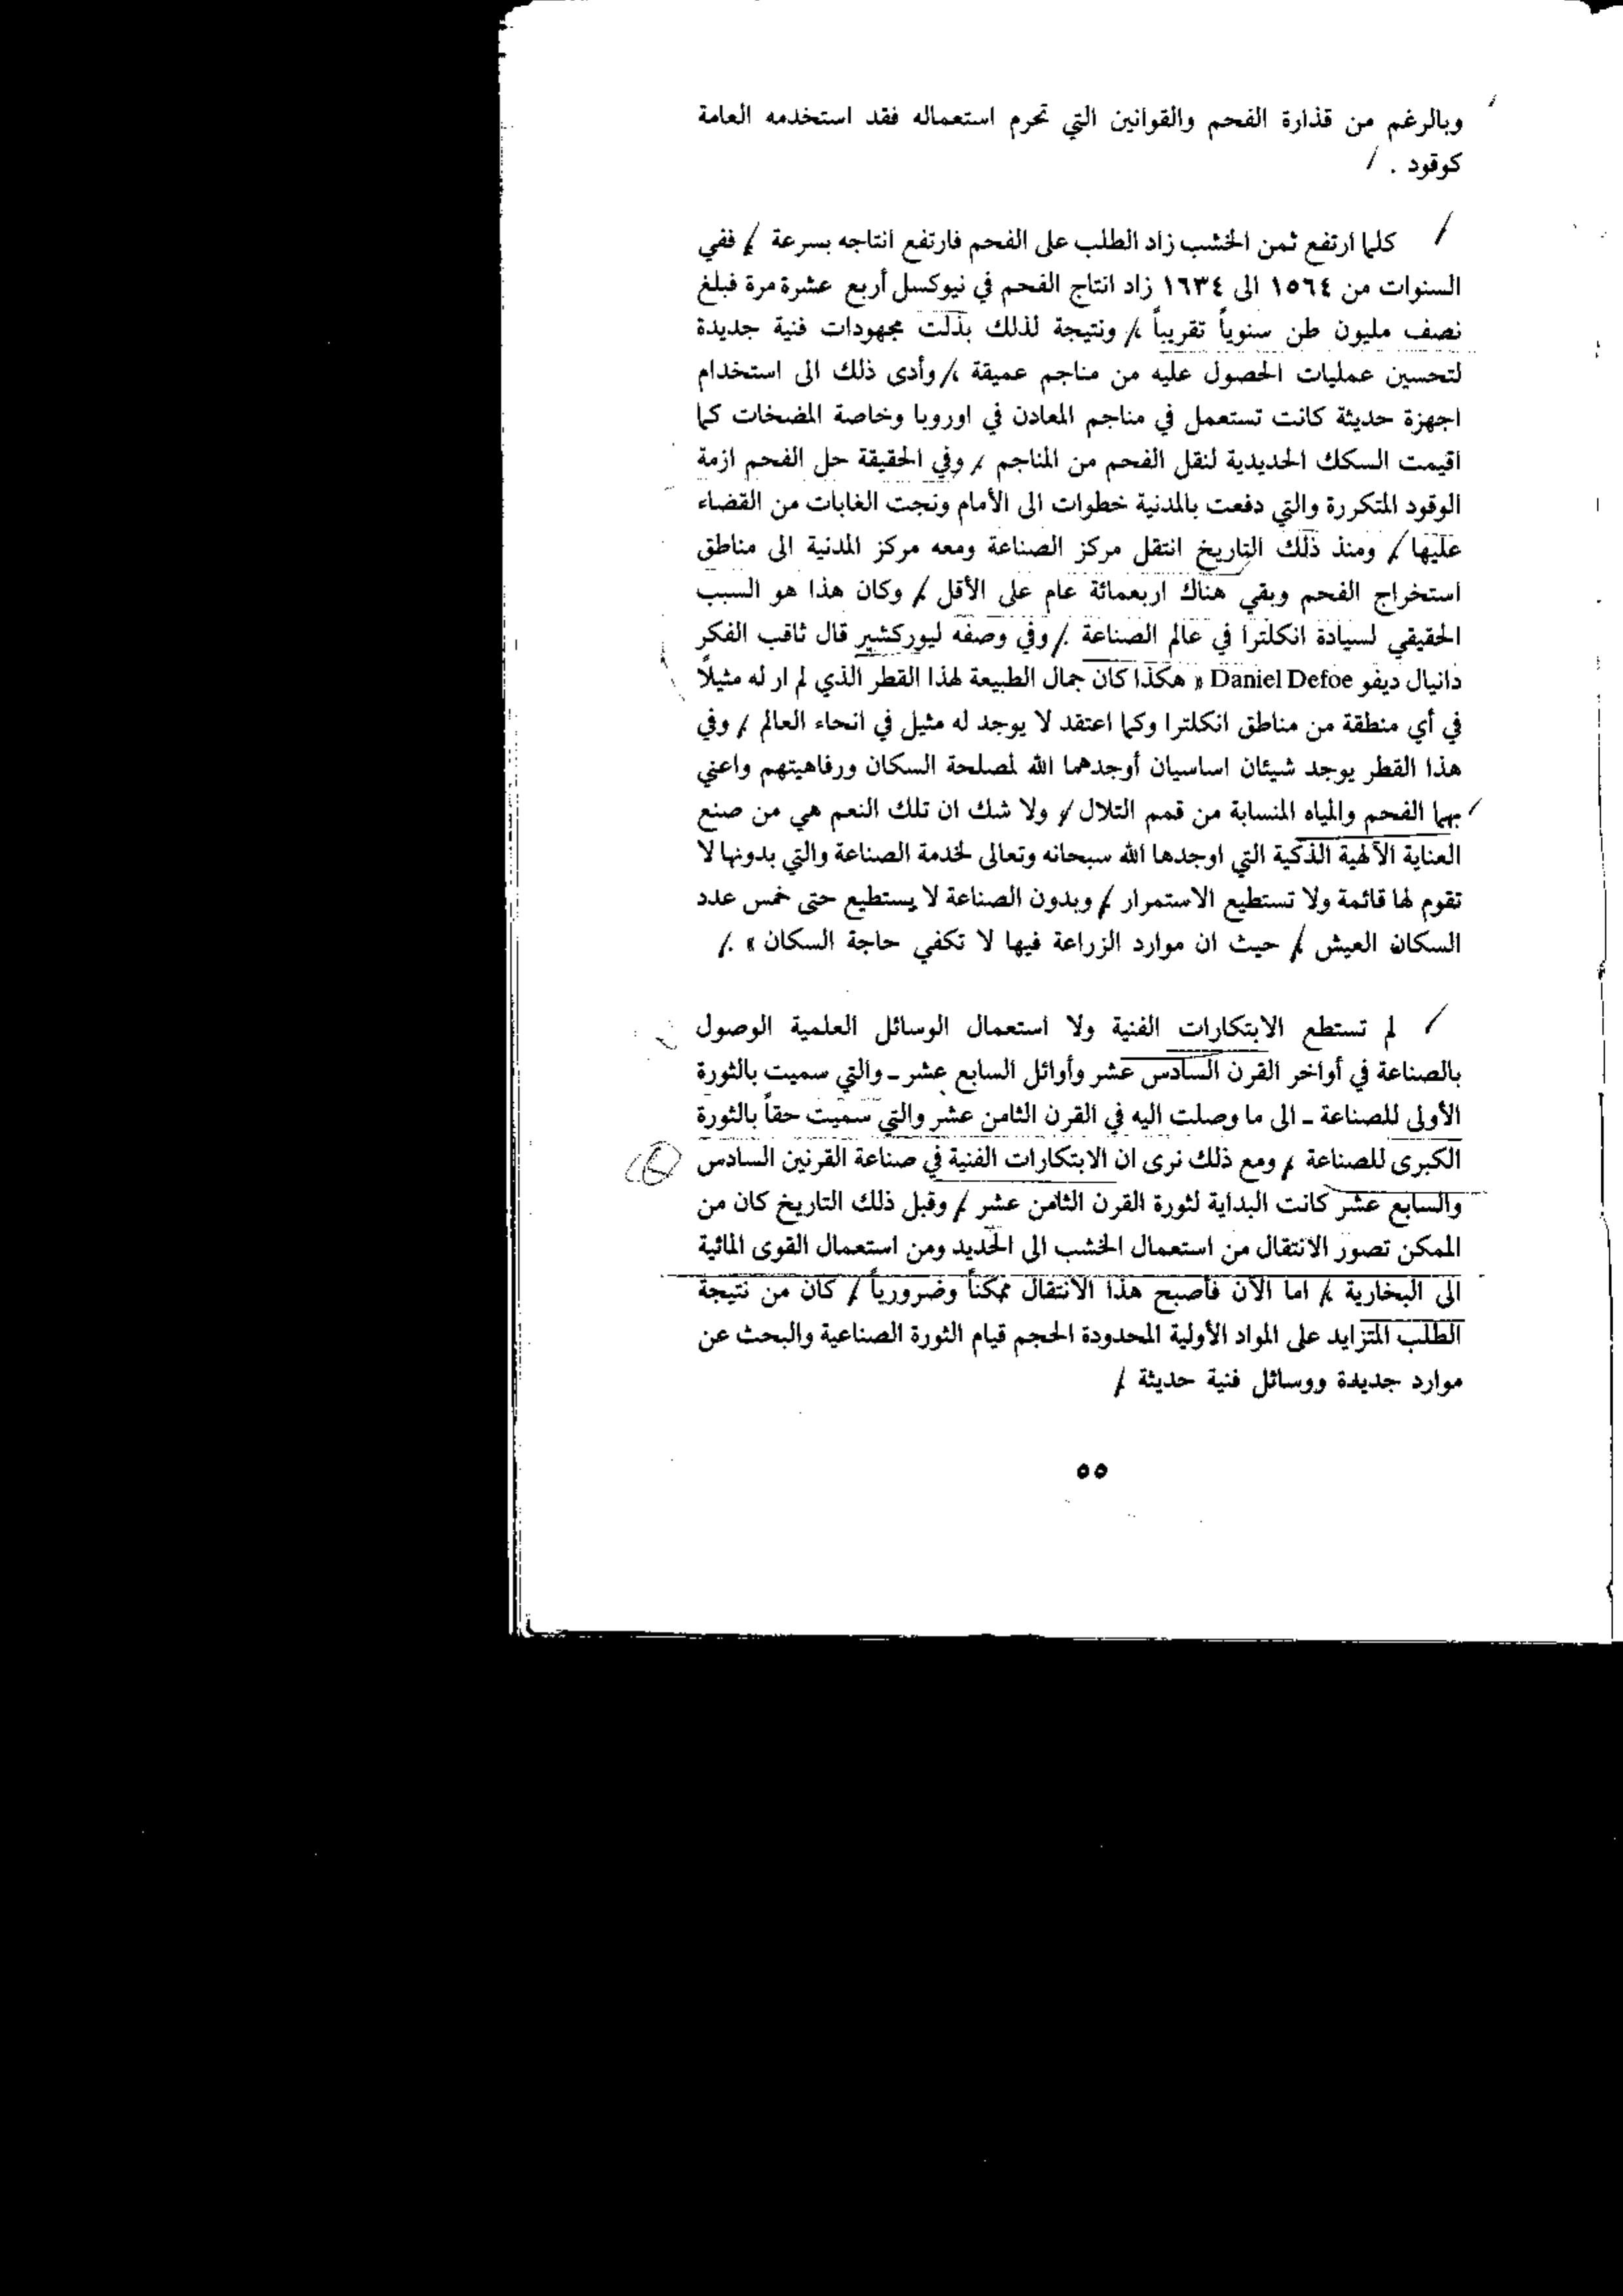 وبالرغم من قذارة الفحم والقوانين التي تحرم استعماله فقد استخدمه العامة
كوقود .
كلما ارتفع ثمن الخشب زاد الطلب على الفحم فارتفع انتاجه بسرعة . ففي
السنوات من ١٥٦٤ الى ١٦٣٤ زاد انتاج الفحم في نيوكسل أربع عشرة مرة فبلغ
نصف مليون طن سنوياً تقريباً . ونتيجة لذلك بذلت مجهودات فنية جديدة
لتحسين عمليات الحصول عليه من مناجم عميقة . وأدى ذلك الى استخدام
اجهزة حديثة كانت تستعمل في مناجم المعادن في اوروبا وخاصة المضخات كما
اقيمت السكك الحديدية لنقل الفحم من المناجم . وفي الحقيقة حل الفحم ازمة
الوقود المتكررة والتي دفعت بالمدنية خطوات الى الأمام ونجت الغابات من القضاء
عليها . ومنذ ذلك التاريخ انتقل مركز الصناعة ومعه مركز المدنية الى مناطق
استخراج الفحم وبقي هناك اربعمائة عام على الأقل . وكان هذا هو السبب
الحقيقي لسيادة انكلترا في عالم الصناعة . وفي وصفه ليوركشير قال ثاقب الفكر
دانيال ديفو Daniel Defoe « هكذا كان جمال الطبيعة لهذا القطر الذي لم ار له مثيلاً
في أي منطقة من مناطق انكلترا وكما اعتقد لا يوجد له مثيل في انحاء العالم . وفي
هذا القطر يوجد شيئان اساسيان أوجدهما الله لمصلحة السكان ورفاهيتهم واعني
بهما الفحم والمياه المنسابة من قمم التلال . ولا شك ان تلك النعم هي من صنع
العناية الآلهية الذكية التي اوجدها الله سبحانه وتعالى لخدمة الصناعة والتي بدونها لا
تقوم لها قائمة ولا تستطيع الاستمرار . وبدون الصناعة لا يستطيع حتى خمس عدد
السكان العيش . حيث ان موارد الزراعة فيها لا تكفي حاجة السكان » .
لم تستطع الابتكارات الفنية ولا استعمال الوسائل العلمية الوصول
بالصناعة في أواخر القرن السادس عشر وأوائل السابع عشر ـ والتي سميت بالثورة
الأولى للصناعة ـ الى ما وصلت اليه في القرن الثامن عشر والتي سميت حقاً بالثورة
الكبرى للصناعة . ومع ذلك نرى ان الابتكارات الفنية في صناعة القرنين السادس
والسابع عشر كانت البداية لثورة القرن الثامن عشر . وقبل ذلك التاريخ كان من
الممكن تصور الانتقال من استعمال الخشب الى الحديد ومن استعمال القوى المائية
الى البخارية . اما الآن فأصبح هذا الانتقال ممكناً وضرورياً . كان من نتيجة
الطلب المتزايد على المواد الأولية المحدودة الحجم قيام الثورة الصناعية والبحث عن
موارد جديدة ووسائل فنية حديثة .
٥٥